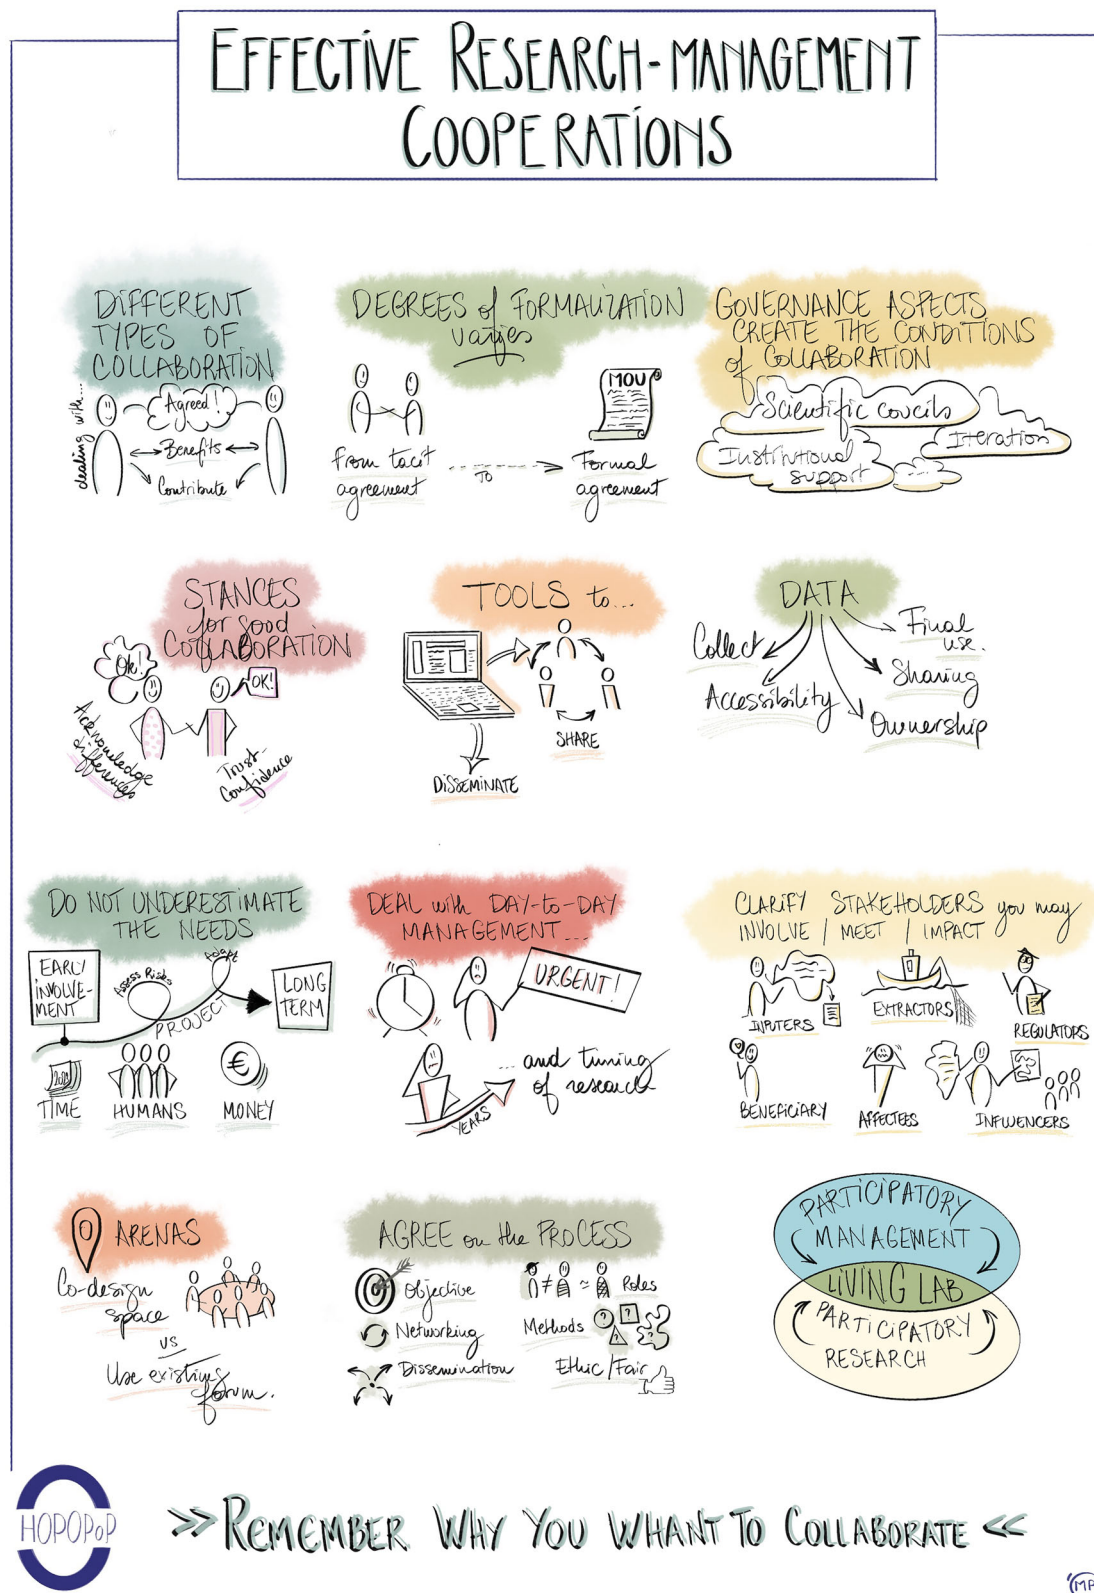 EFFECTIVE RESEARCH-MANAGEMENT
COOPERATIONS
DIFFERENT
TYPES OF
COLLABORATION
dealing with...
Agreed!
Benefits
Contribute
DEGREES of FORMALIZATION
varies
MOU
From tacit
agreement
TO
Formal
agreement
GOVERNANCE ASPECTS
CREATE THE CONDITIONS
of COLLABORATION
Scientific coucils
Institutional
support
Iteration
...
STANCES
for good
COLLABORATION
Ok!
OK!
Acknowledge
differences
Trust-
Confidence
TOOLS to...
SHARE
DISSEMINATE
DATA
Collect
Accessibility
Final
use.
Sharing
Ownership
DO NOT UNDERESTIMATE
THE NEEDS
EARLY
INVOLVE-
MENT
Assess Risks
Adapt
PROJECT
LONG
TERM
TIME
HUMANS
€
MONEY
DEAL with DAY-to-DAY
MANAGEMENT...
URGENT!
... and timing
of research
YEARS
CLARIFY STAKEHOLDERS you may
INVOLVE / MEET / IMPACT
INPUTERS
EXTRACTORS
REGULATORS
BENEFICIARY
AFFECTEES
INFLUENCERS
ARENAS
Co-design
space
vs
Use existing
forum.
AGREE on the PROCESS
Objective
Networking
Dissemination
≠ ≃ Roles
Methods
? ? ? ?
Ethic/Fair
PARTICIPATORY
MANAGEMENT
LIVING LAB
PARTICIPATORY
RESEARCH
HOPOPoP
>> REMEMBER WHY YOU WHANT TO COLLABORATE <<
MP